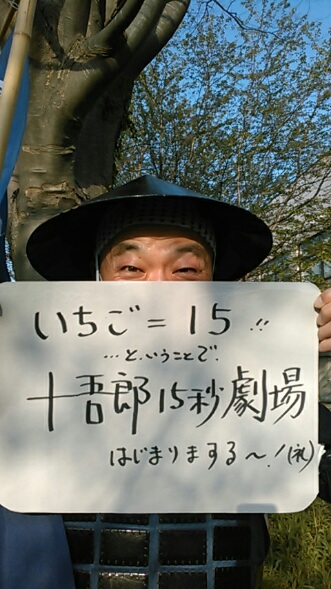 いちご=15!!
…と、いうことで、
十吾郎15秒劇場
はじまりまする〜!(礼)